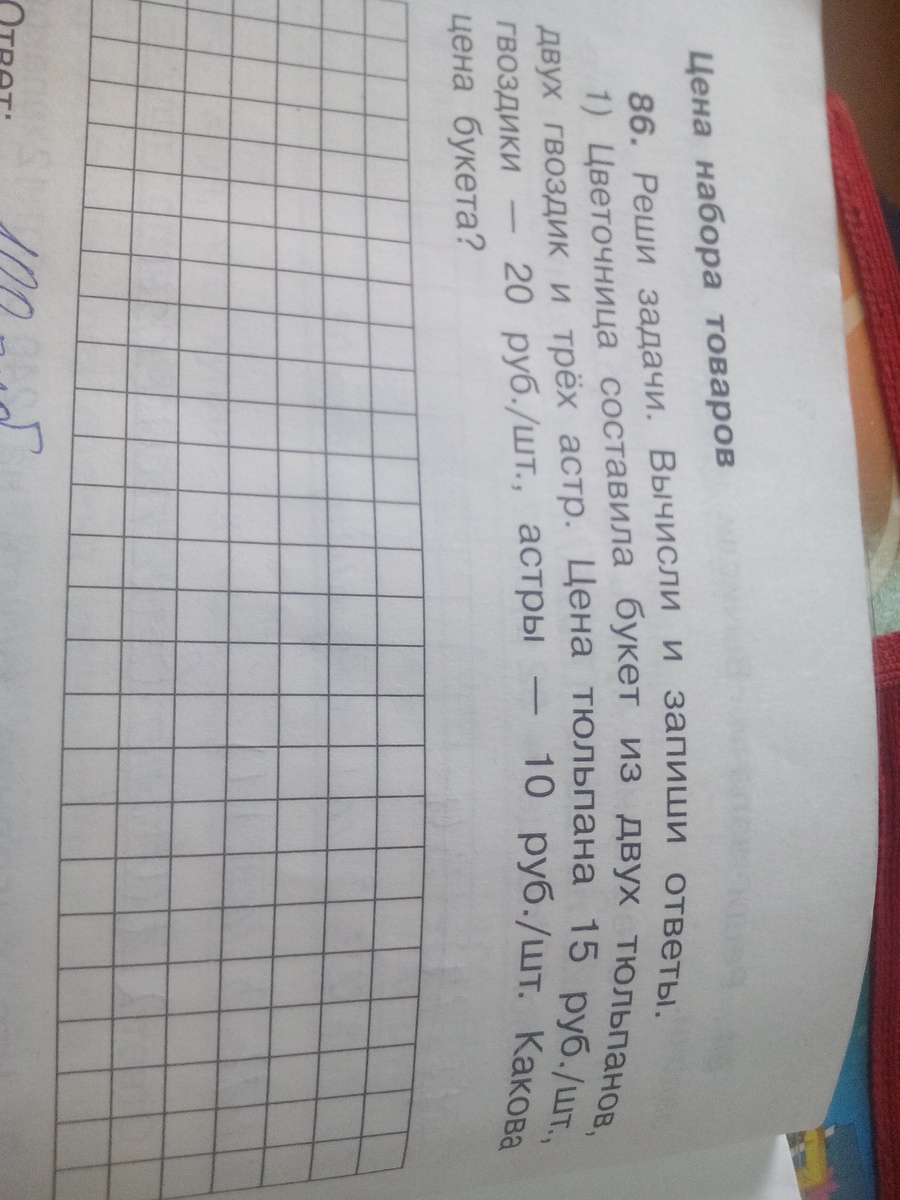 Цена набора товаров
86. Реши задачи. Вычисли и запиши ответы.
1) Цветочница составила букет из двух тюльпанов,
двух гвоздик и трёх астр. Цена тюльпана 15 руб./шт.,
гвоздики — 20 руб./шт., астры — 10 руб./шт. Какова
цена букета?
Ответ: 100 руб